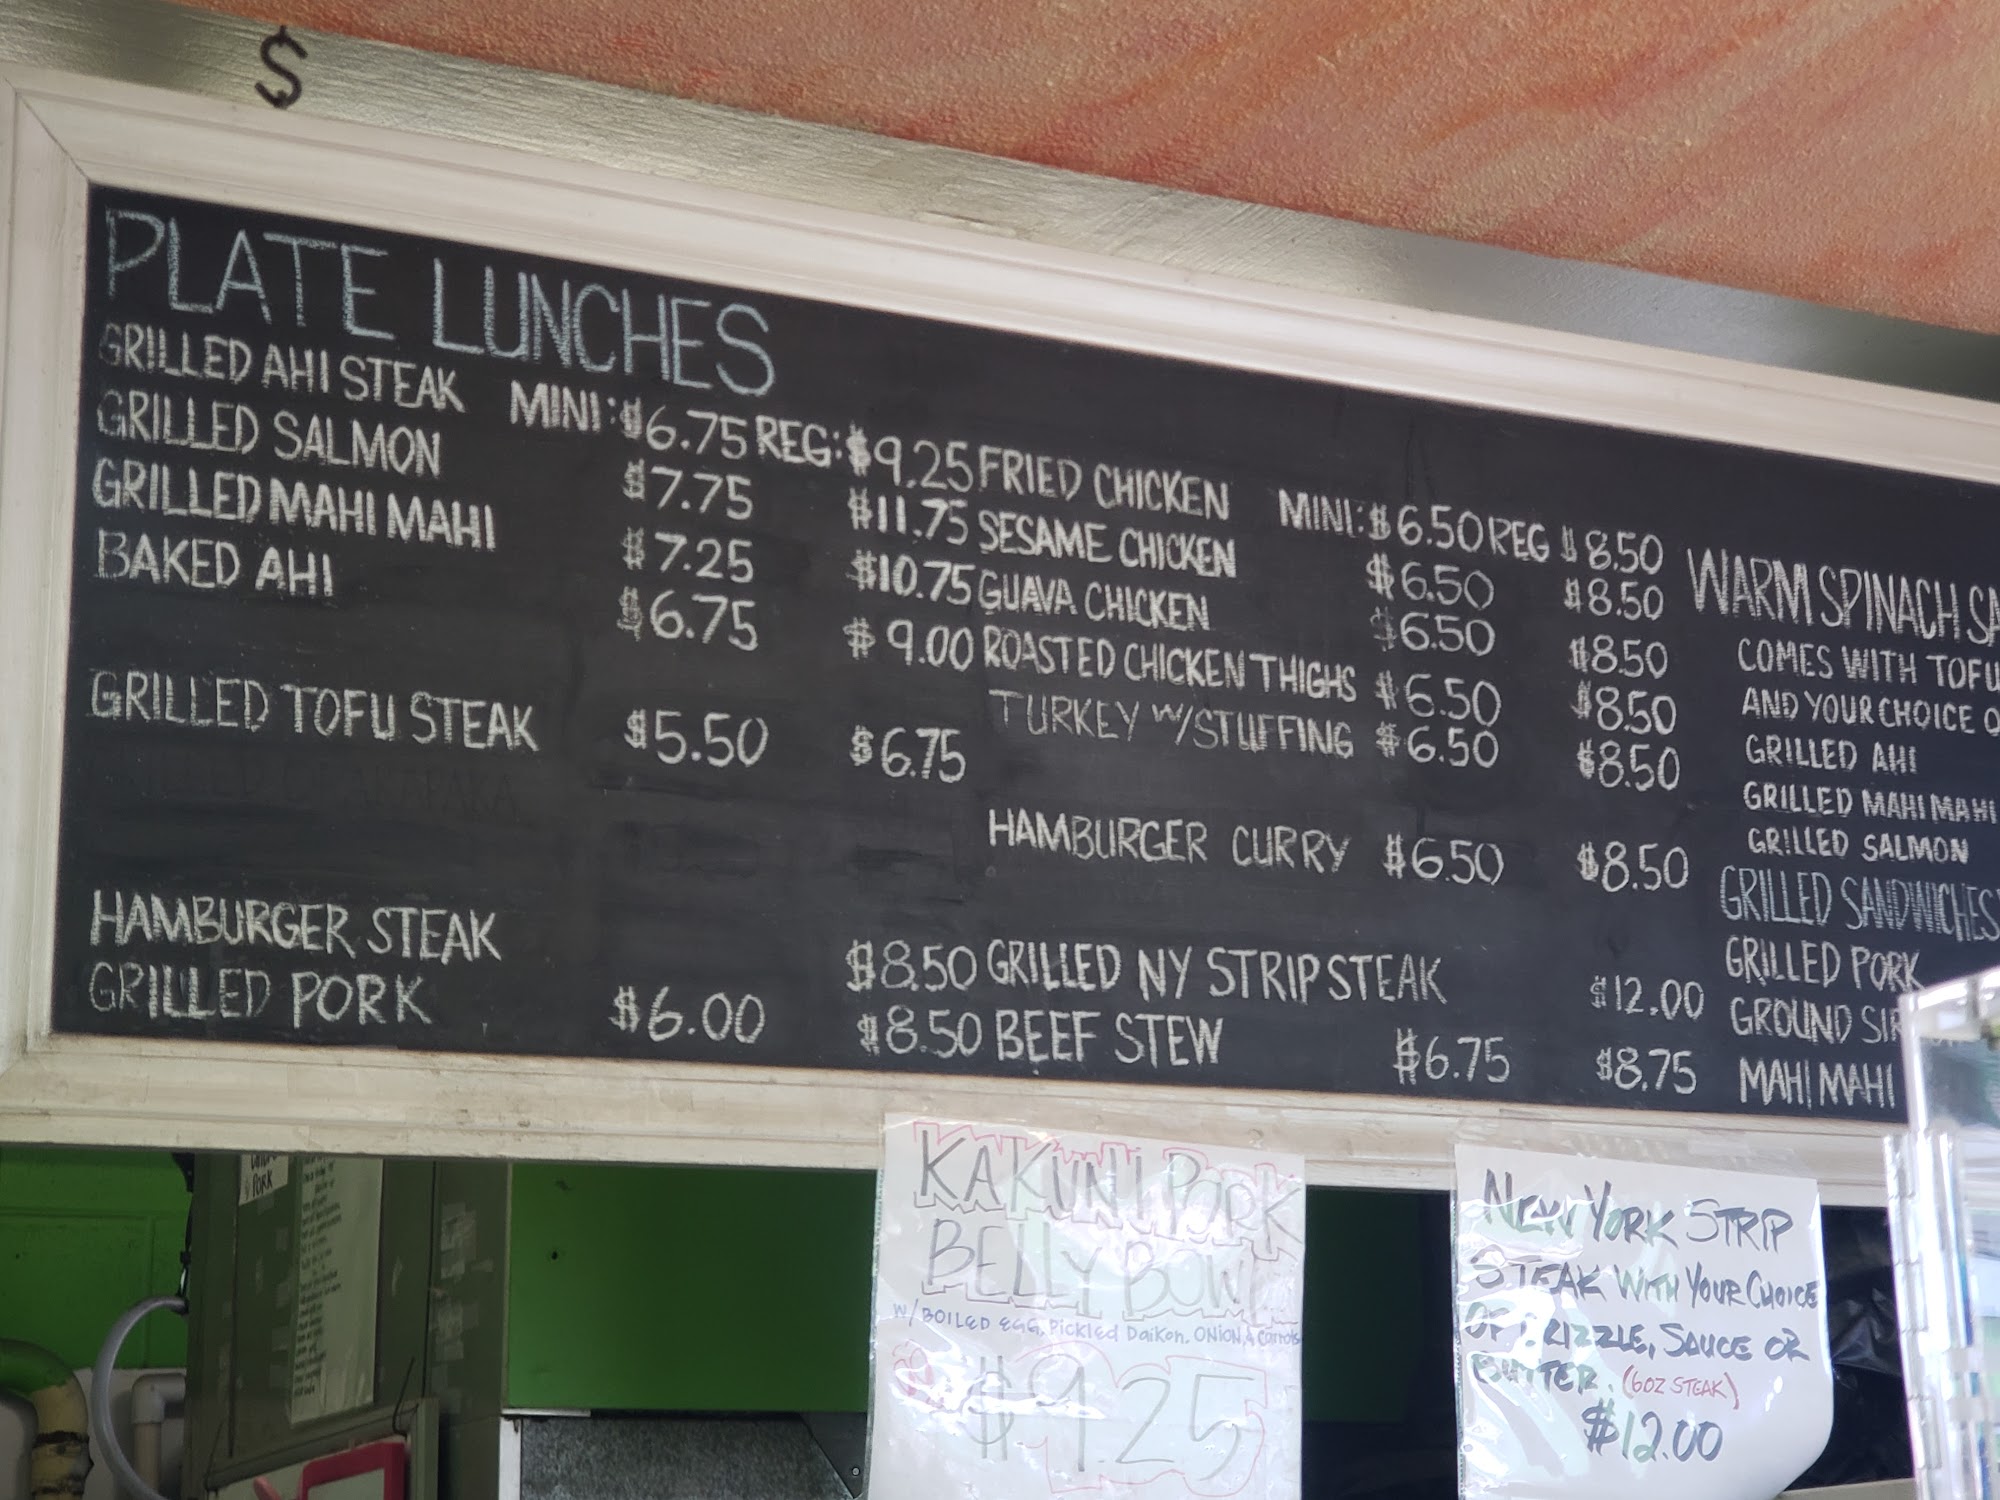 $
PLATE LUNCHES
GRILLED AHI STEAK MINI: $6.75 REG: $9.25
GRILLED SALMON $7.75 $11.75
GRILLED MAHI MAHI $7.25 $10.75
BAKED AHI $6.75 $9.00
GRILLED TOFU STEAK $5.50 $6.75
HAMBURGER STEAK $8.50
GRILLED PORK $6.00 $8.50
FRIED CHICKEN MINI: $6.50 REG $8.50
SESAME CHICKEN $6.50 $8.50
GUAVA CHICKEN $6.50 $8.50
ROASTED CHICKEN THIGHS $6.50 $8.50
TURKEY W/STUFFING $6.50 $8.50
HAMBURGER CURRY $6.50 $8.50
GRILLED NY STRIP STEAK $12.00
BEEF STEW $6.75 $8.75
WARM SPINACH SA
COMES WITH TOFU
AND YOUR CHOICE O
GRILLED AHI
GRILLED MAHI MAHI
GRILLED SALMON
GRILLED SANDWICHES
GRILLED PORK
GROUND SIR
MAHI MAHI
PORK
KAKUNI PORK
BELLY BOWL
W/BOILED EGG, PICKLED DAIKON, ONION, & CARROTS
$9.25
NEW YORK STRIP
STEAK WITH YOUR CHOICE
OF DRIZZLE, SAUCE OR
BUTTER. (6OZ STEAK)
$12.00